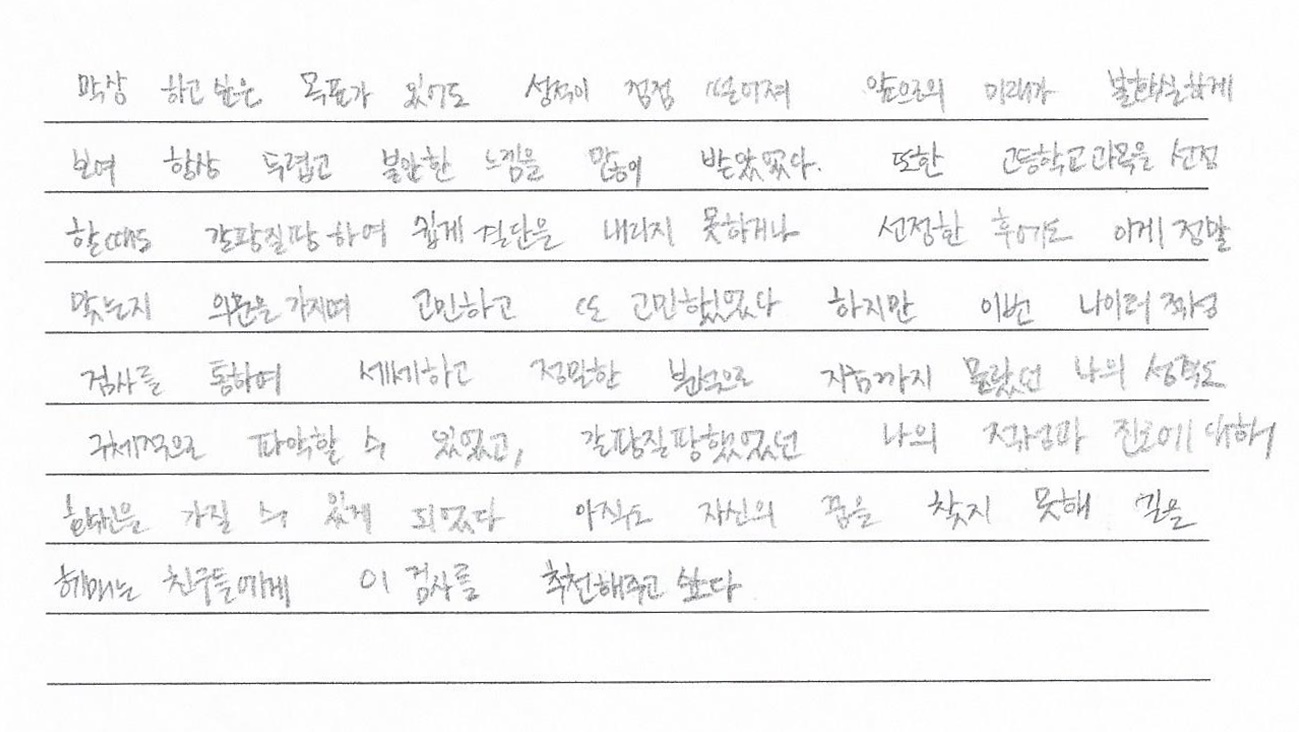 막상 하고 싶은 목표가 있어도 성적이 점점 떨어져 앞으로의 미래가 불확실하게
보여 항상 두렵고 불안한 느낌을 많이 받았었다. 또한 고등학교 과목을 선정
할 때도 갈팡질팡 하여 쉽게 결단을 내리지 못하거나 선정한 후에도 이게 정말
맞는지 의문을 가지며 고민하고 또 고민했었었다 하지만 이번 나이터 적성
검사를 통하여 세세하고 정밀한 분석으로 지금까지 몰랐던 나의 성격도
구체적으로 파악할 수 있었고, 갈팡질팡했었었던 나의 적성과 진로에 대해서
확신을 가질 수 있게 되었다 아직도 자신의 꿈을 찾지 못해 길을
헤매는 친구들에게 이 검사를 추천해주고 싶다